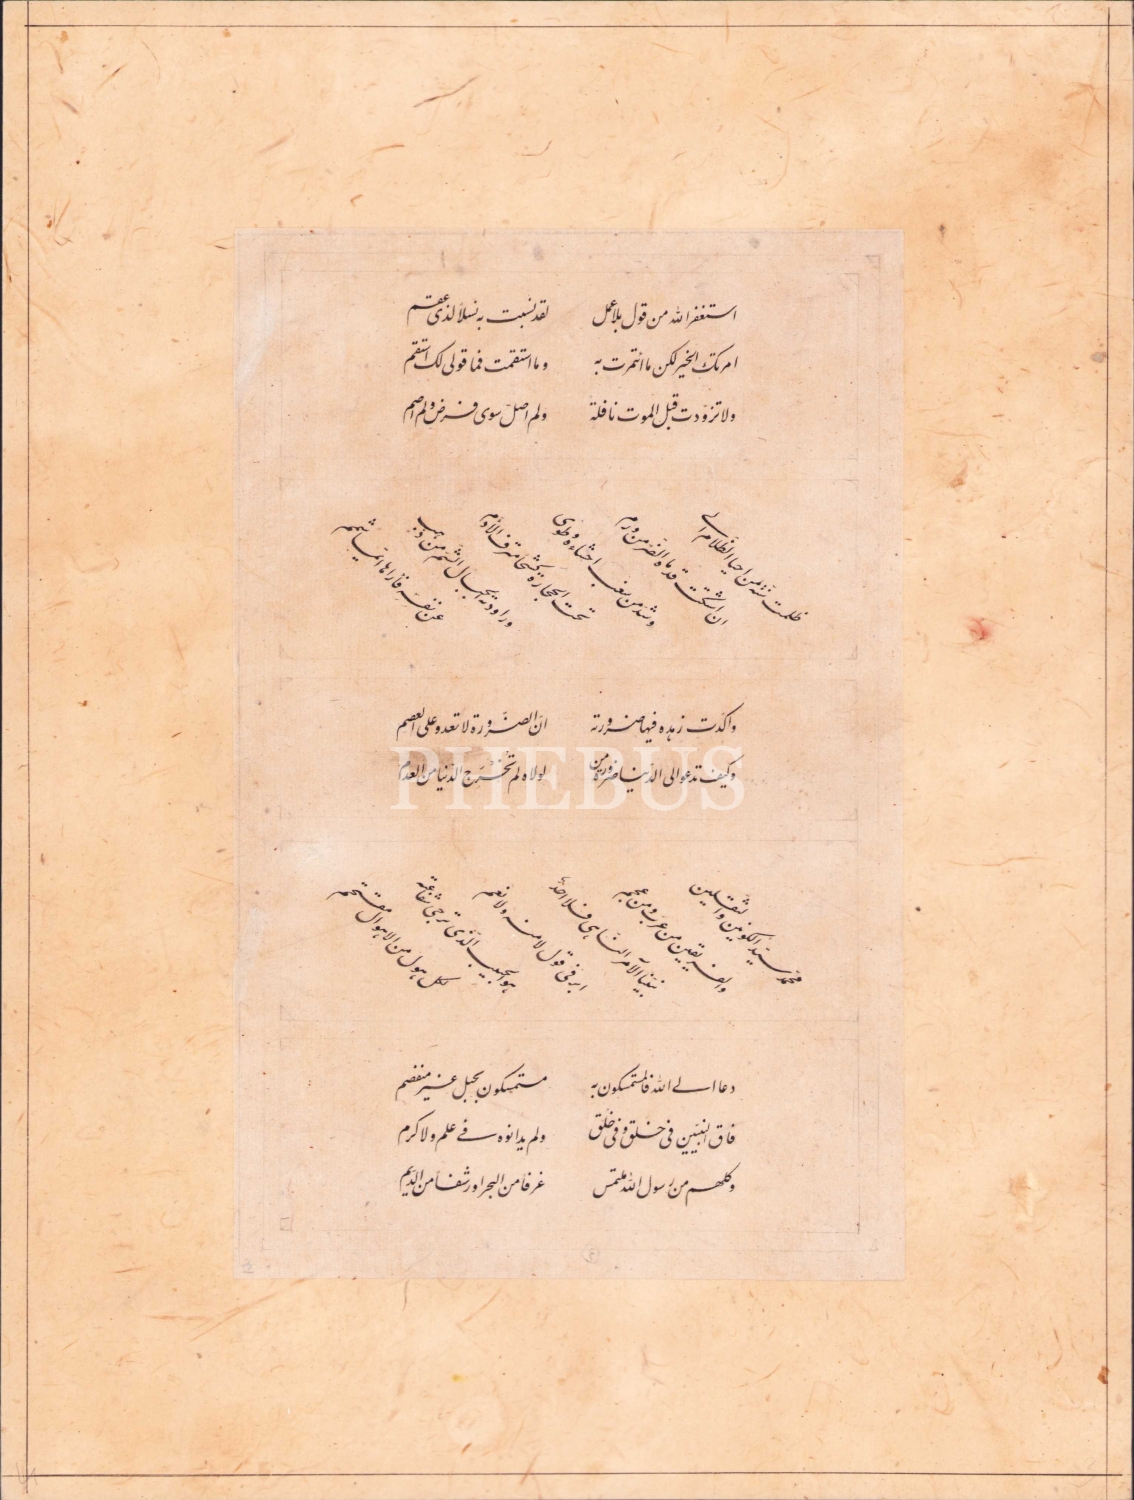 استغفر الله من قول بلا عمل لقد نسبت به نسلا لذی عقم
امرتک الخیر لکن ما ائتمرت به و ما استقمت فما قولی لک استقم
ولا تزوّدت قبل الموت نافلة ولم اصلّ سوی فرض ولم اصم
ظلمت سنّة من احیا الظلام الی
ان اشتکت قدماه الضرّ من ورم
وشدّ من سغب احشاءه وطوی
تحت الحجارة کشحا مترف الأدم
وراودته الجبال الشّمّ من ذهب
عن نفسه فأراها ایّما شمم
واکدّت زهده فیها ضرورته انّ الضّرورة لا تعدو علی العصم
وکیف تدعو الی الدّنیا ضرورة من لولاه لم تخرج الدّنیا من العدم
محمّد سیّد الکونین والثّقلین
والفریقین من عرب ومن عجم
نبیّنا الآمر النّاهی فلا احدٌ
ابرّ فی قول لا منه ولا نعم
هو الحبیب الّذی ترجی شفاعته
لکل هول من الاهوال مقتحم
دعا الی الله فالمستمسکون به مستمسکون بحبل غیر منفصم
فاق النبیّین فی خَلق وفی خُلق ولم یدانوه فی علم ولا کرم
وکلهم من رسول الله ملتمس غرفا من البحر او رشفا من الدّیم
PHEBUS